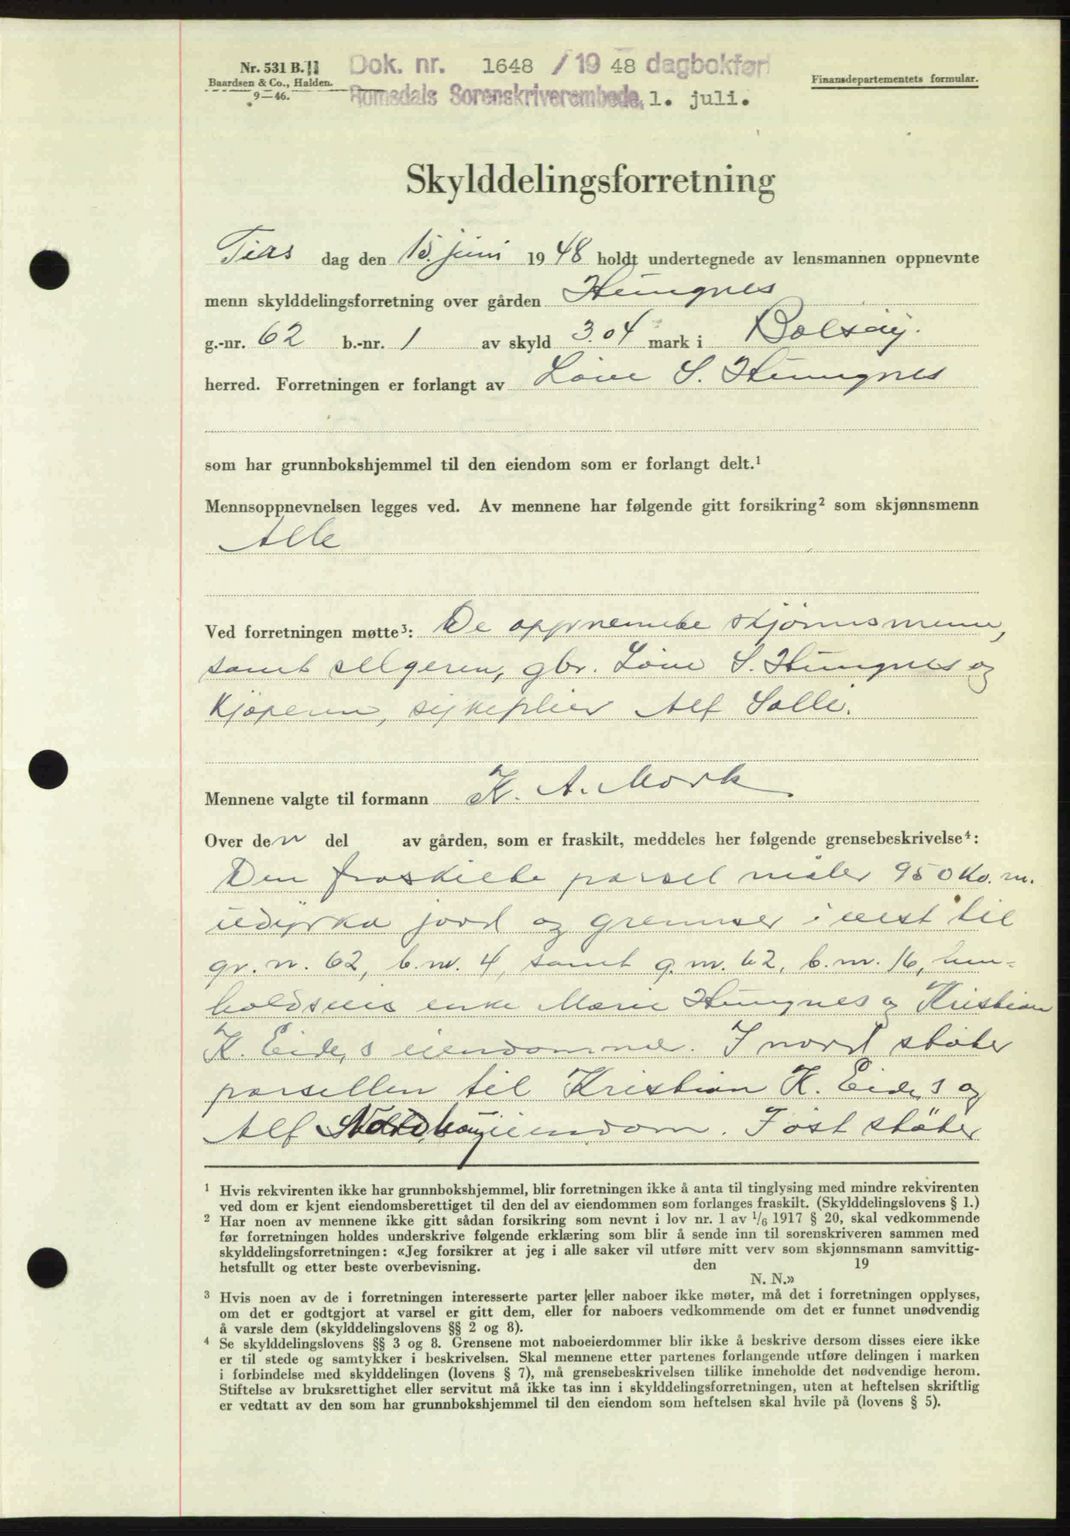 Nr. 531 B. II
Baardsen & Co., Halden.
9—46.
Dok. nr. 1648 / 1948 dagbokført
Romsdals Sorenskriverembede, 1. juli.
Finansdepartementets formular.
Skylddelingsforretning
Tirs dag den 15. juni 1948 holdt undertegnede av lensmannen oppnevnte
menn skylddelingsforretning over gården Hungnes
g.-nr. 62 b.-nr. 1 av skyld 3.04 mark i Bolsøy.
herred. Forretningen er forlangt av Love S. Hungnes
som har grunnbokshjemmel til den eiendom som er forlangt delt.¹
Mennsoppnevnelsen legges ved. Av mennene har følgende gitt forsikring² som skjønnsmenn
Alle
Ved forretningen møtte³: De oppnevnte skjønnsmenn,
samt selgeren, gbr. Love S. Hungnes og
kjøperen, sykepleier Alf Solli.
Mennene valgte til formann K. A. Mork
Over den del av gården, som er fraskilt, meddeles her følgende grensebeskrivelse⁴:
Den fraskilte parsel måler 950 kv. m.
udyrka jord og grenser i vest til
gr. n. 62, b. nr. 4, samt g. nr. 62, b. nr. 16, hen-
holdsvis enke Marie Hungnes og Kristian
K. Eide,s eiendommer. I nord støter
parsellen til Kristian K. Eide,s og
Alf Nordhøy eiendom. I øst støter
¹ Hvis rekvirenten ikke har grunnbokshjemmel, blir forretningen ikke å anta til tinglysing med mindre rekvirenten
ved dom er kjent eiendomsberettiget til den del av eiendommen som forlanges fraskilt. (Skylddelingslovens § 1.)
² Har noen av mennene ikke gitt sådan forsikring som nevnt i lov nr. 1 av 1/6 1917 § 20, skal vedkommende
før forretningen holdes underskrive følgende erklæring som blir å sende inn til sorenskriveren sammen med
skylddelingsforretningen: «Jeg forsikrer at jeg i alle saker vil utføre mitt verv som skjønnsmann samvittig-
hetsfullt og etter beste overbevisning. den 19
N. N.»
³ Hvis noen av de i forretningen interesserte parter eller naboer ikke møter, må det i forretningen opplyses,
om det er godtgjort at varsel er gitt dem, eller for naboers vedkommende om det er funnet unødvendig
å varsle dem (skylddelingslovens §§ 2 og 8).
⁴ Se skylddelingslovens §§ 3 og 8. Grensene mot naboeierdommer blir ikke å beskrive dersom disses eiere ikke
er til stede og samtykker i beskrivelsen. Skal mennene etter partenes forlangende utføre delingen i marken
i forbindelse med skylddelingen (lovens § 7), må grensebeskrivelsen tillike inneholde det nødvendige herom.
Stiftelse av bruksrettighet eller servitut må ikke tas inn i skylddelingsforretningen, uten at heftelsen skriftlig
er vedtatt av den som har grunnbokshjemmel til den eiendom som heftelsen skal hvile på (lovens § 5).